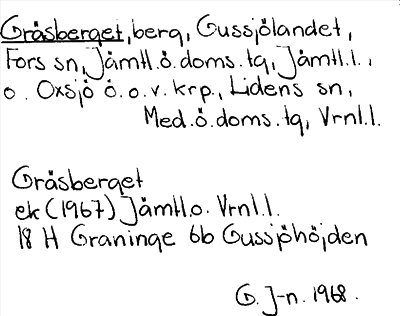 Gråsberget, berg, Gussjölandet,
Fors sn, Jämtl.ö.doms.tg, Jämtl.l.,
o. Oxsjö ö.o.v.krp., Lidens sn,
Med.ö.doms.tg, Vrnl.l.
Gråsberget
ek (1967) Jämtl.o. Vrnl.l.
18 H Graninge 6b Gussjöhöjden
G. J-n. 1968.